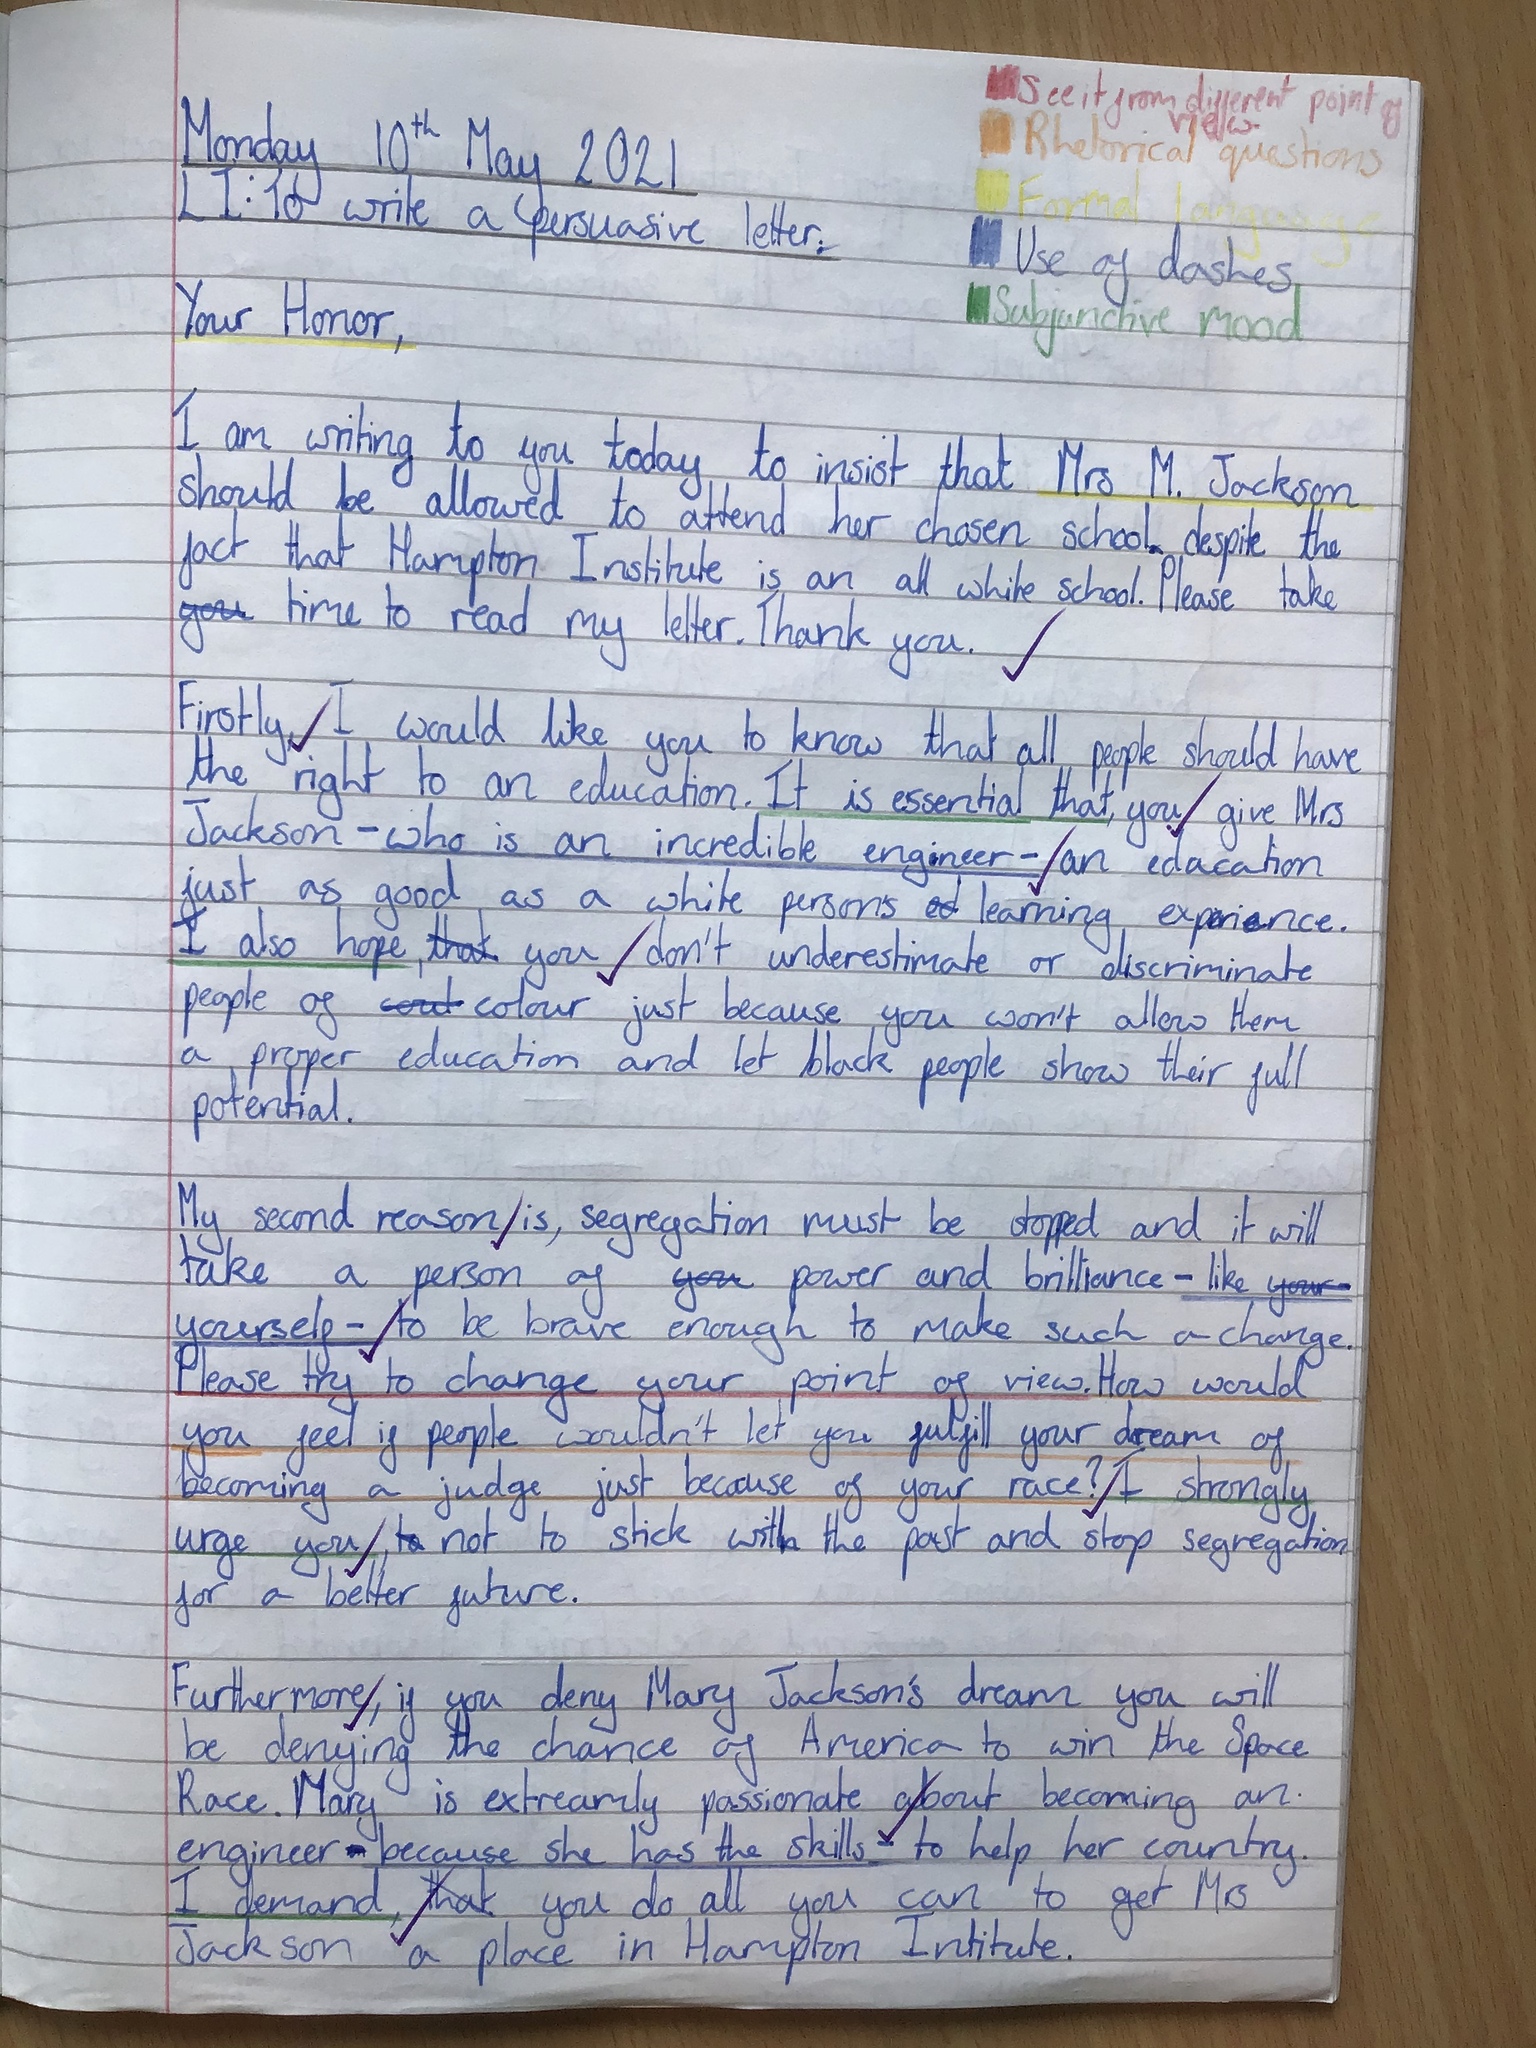 See it from different point of
view.
Rhetorical questions
Formal language
Use of dashes
Subjunctive mood
Monday 10th May 2021
LI: To write a persuasive letter.
Your Honor,
I am writing to you today to insist that Mrs M. Jackson
should be allowed to attend her chosen school despite the
fact that Hampton Institute is an all white school. Please take
you time to read my letter. Thank you.
Firstly, I would like you to know that all people should have
the right to an education. It is essential that, you give Mrs
Jackson - who is an incredible engineer - an edacation
just as good as a white persons ed learning experience.
I also hope, that you don't underestimate or discriminate
people of coul colour just because you won't allow them
a proper education and let black people show their full
potential.
My second reason is, segregation must be stopped and it will
take a person of you power and brilliance - like your-
yourself - to be brave enough to make such a change.
Please try to change your point of view. How would
you feel if people wouldn't let you fulfill your dream of
becoming a judge just because of your race? I strongly
urge you, to not to stick with the past and stop segregation
for a better future.
Furthermore, if you deny Mary Jackson's dream you will
be denying the chance of America to win the Space
Race. Mary is extreamly passionate about becoming an
engineer - because she has the skills - to help her country.
I demand, that you do all you can to get Mrs
Jackson a place in Hampton Intitute.